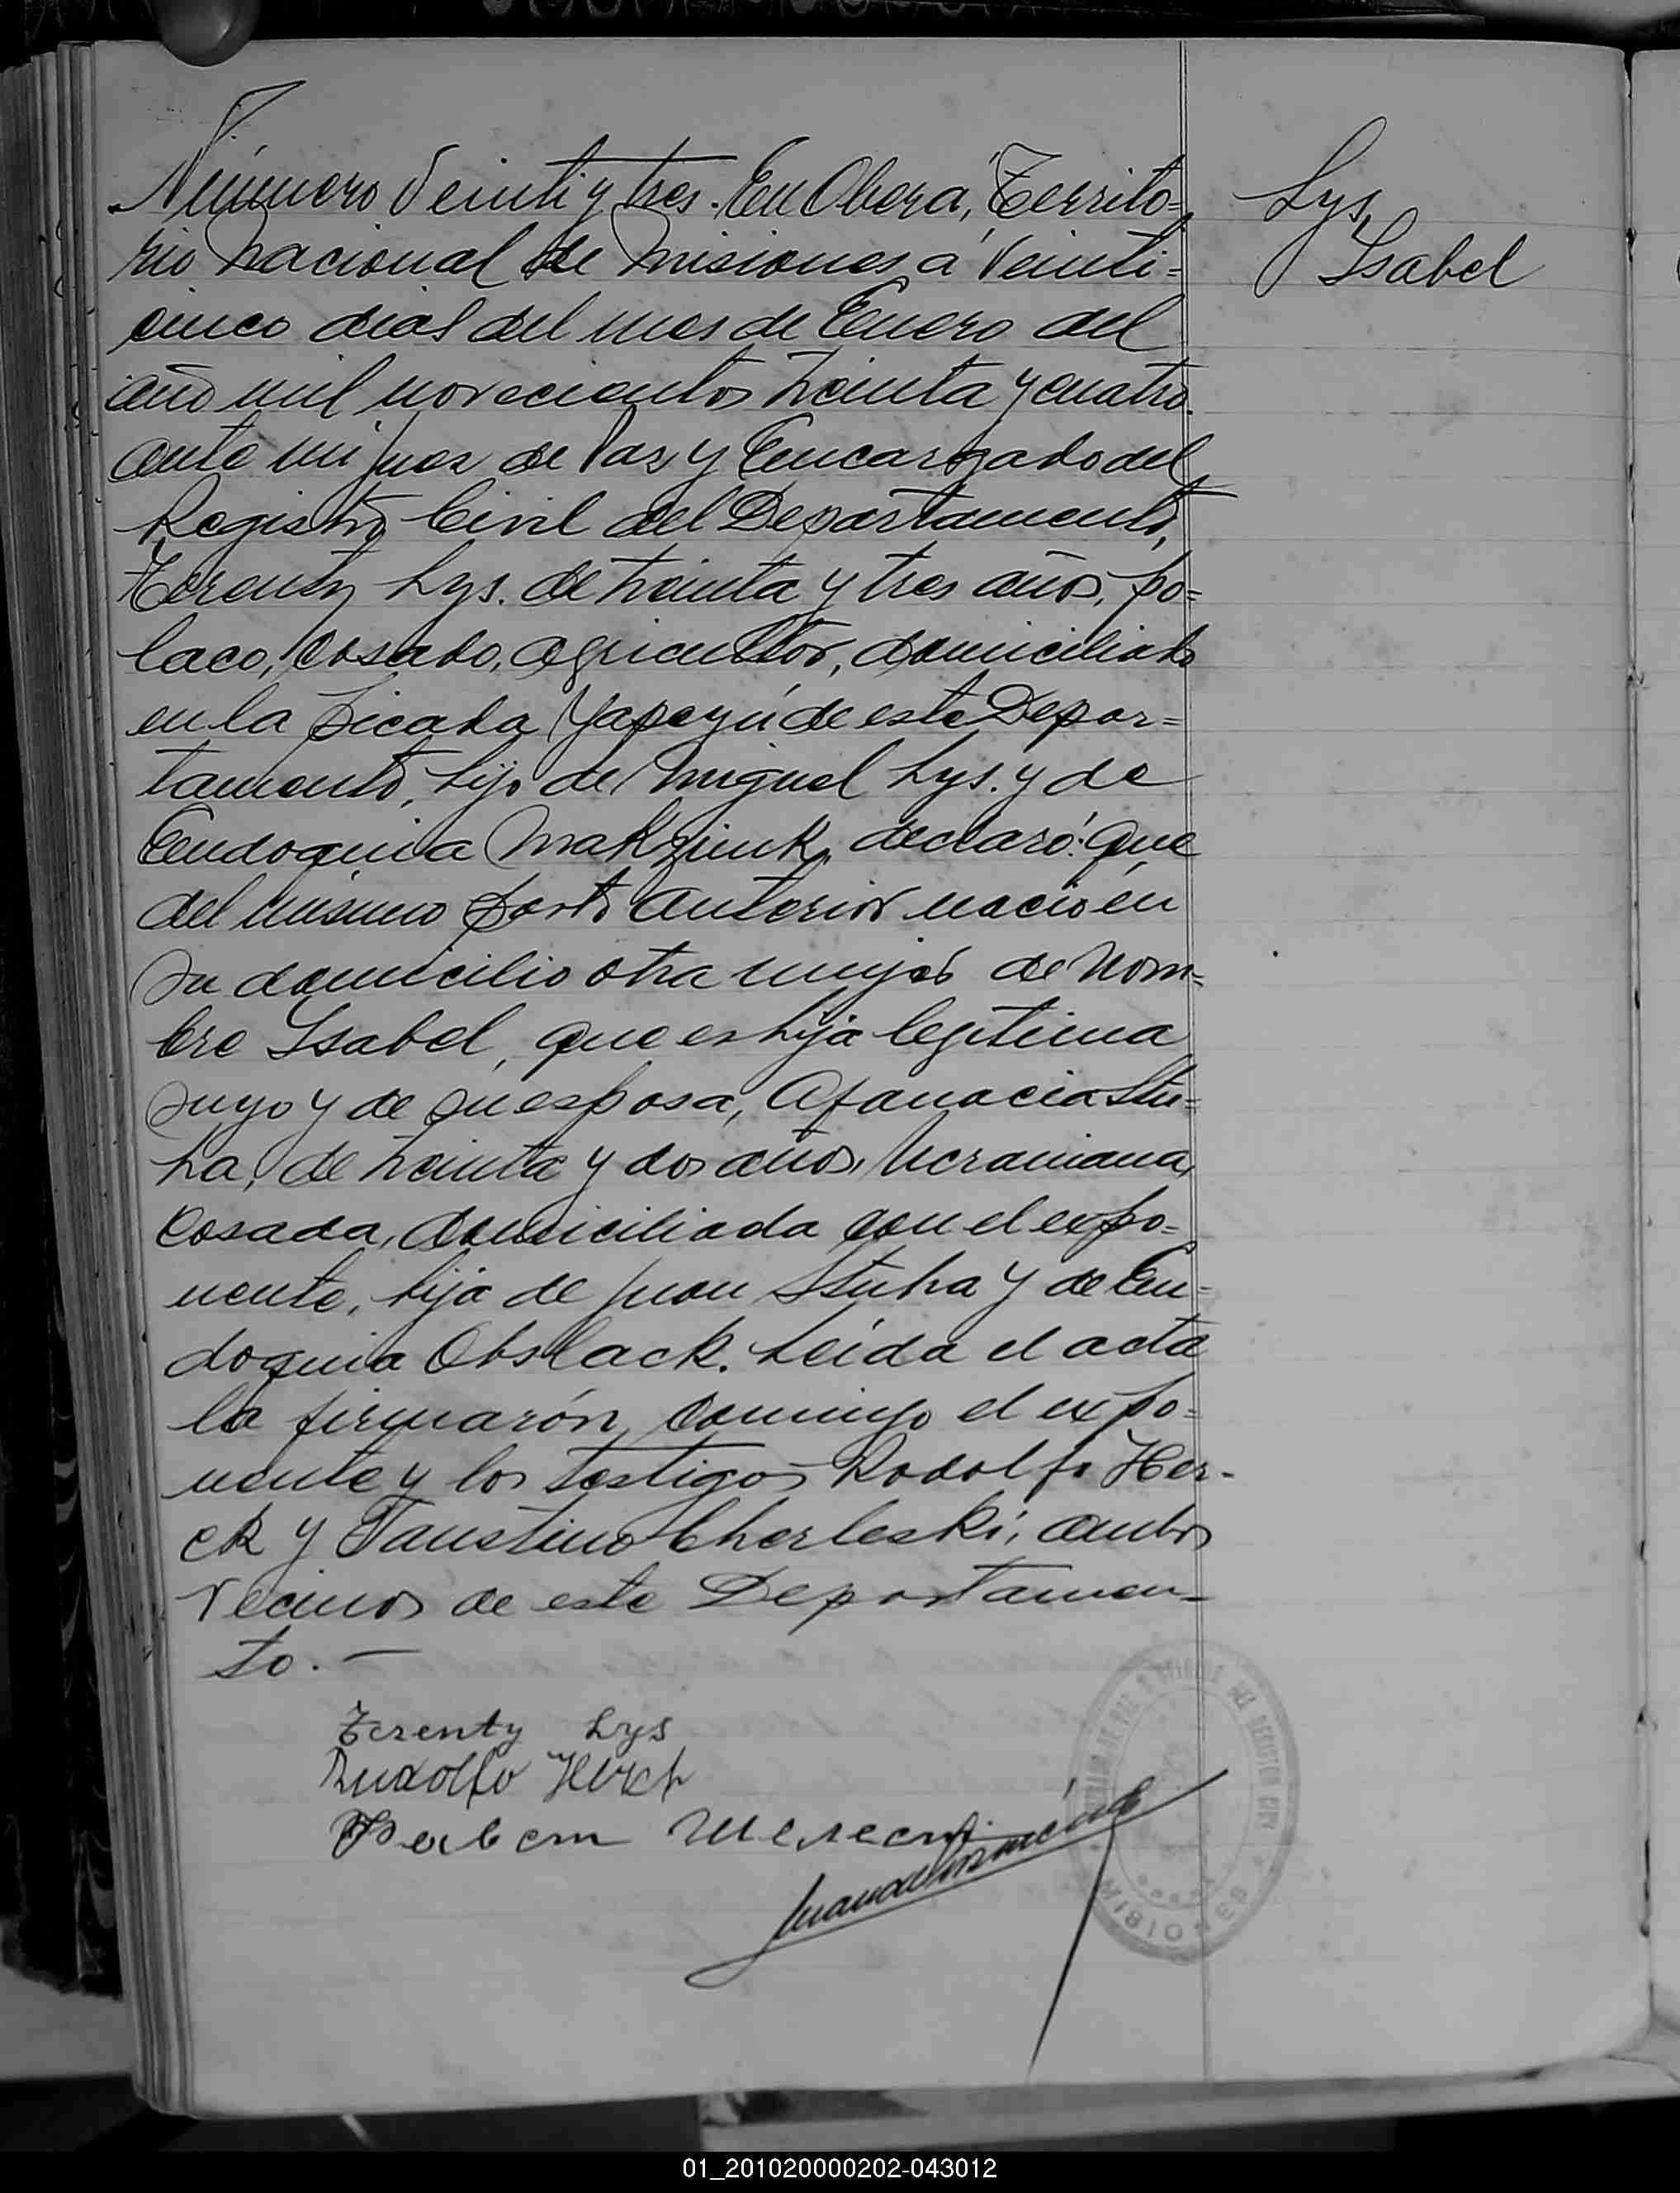 Número Veinti y tres. En Oberá, Territo=
rio Nacional de Misiones, a Veinti=
cinco dias del mes de Enero del
año mil novecientos treinta y cuatro
ante mi Juez de Paz y Encargado del
Registro Civil del Departamento,
Terenty Lys. de treinta y tres años, po=
laco, casado, agricultor, domiciliado
en la picada Yapeyú de este Depar=
tamento, hijo de Miguel Lys. y de
Eudoquia declaró: Que
del mismo parto anterior nació en
su domicilio otra mujer de nom=
bre Isabel, que es hija legitima
suyo y de su esposa, Afanacia Stu=
ha, de treinta y dos años, Ucraniana,
casada, domiciliada con el expo=
nente, hija de Juan Stuha y de Eu=
doquia Obslack. Leída el acta
la firmarón conmigo el expo=
nente y los testigos Rodolfo Her-
ck y Faustino Cherleski, ambos
vecinos de este Departamen-
to. —
Lys,
Isabel
Terenty Lys
Rudolfo
MISIONES
01_201020000202-043012